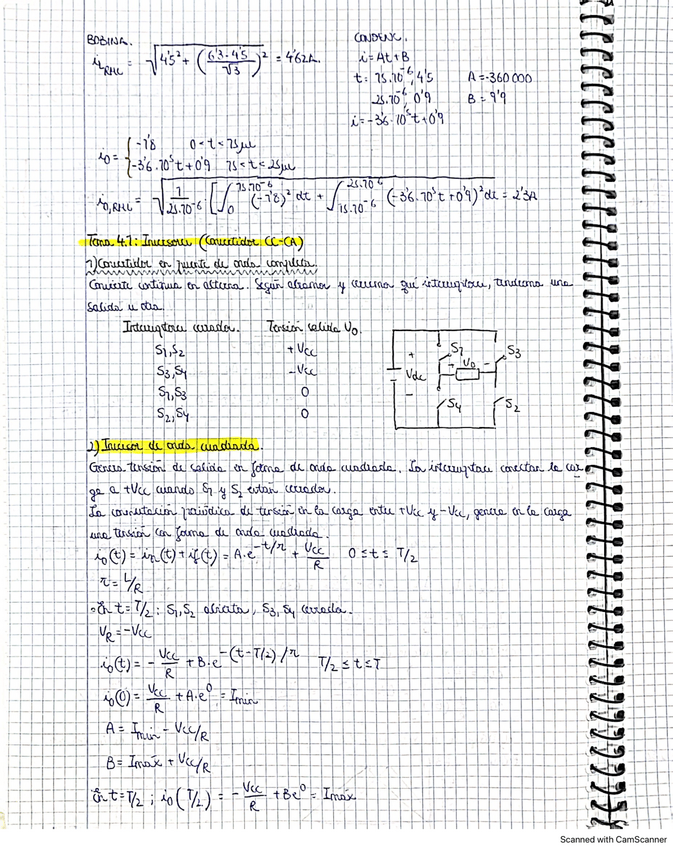 BOBINA.
i_L RMS = √(4'5² + ((6'3-4'5)/√3)²) = 4'62A.
CONDENS.
i = At + B
t: 75·10⁻⁶, 4'5    A = -360 000
25·10⁻⁶, 0'9    B = 9'9
i = -3'6·10⁵t + 0'9
i₀ = { -1'8    0 < t < 75μs
-3'6·10⁵t + 0'9    75 < t < 25μs
i₀,RMS = √(1/(25·10⁻⁶) [∫₀^(75·10⁻⁶) (-1'8)² dt + ∫_(15·10⁻⁶)^(25·10⁻⁶) (-3'6·10⁵t + 0'9)² dt = 2'3A
Tema 4.1: Inversores (Convertidor CC-CA)
1) Convertidor en puente de onda completa.
Convierte continua en alterna. Según abramos y cerremos qué interruptores, tendremos una
salida u otra.
Interruptores cerrados.    Tensión salida V₀.
S₁, S₂    +Vcc
S₃, S₄    -Vcc
S₁, S₃    0
S₂, S₄    0
+ S₁ S₃
Vdc + V₀ -
- S₄ S₂
2) Inversor de onda cuadrada.
Genera tensión de salida en forma de onda cuadrada. Los interruptores conectan la car-
ga a +Vcc cuando S₁ y S₂ están cerrados.
La conmutación periódica de tensión en la carga entre +Vcc y -Vcc, genera en la carga
una tensión con forma de onda cuadrada.
i₀(t) = in(t) + if(t) = A·e^(-t/τ) + Vcc/R    0 ≤ t ≤ T/2
τ = L/R
· En t = T/2 : S₁, S₂ abiertos, S₃, S₄ cerrados.
V_R = -Vcc
i₀(t) = -Vcc/R + B·e^(-(t-T/2)/τ)    T/2 ≤ t ≤ T
i₀(0) = Vcc/R + A·e⁰ = Imin
A = Imin - Vcc/R
B = Imáx + Vcc/R
En t = T/2 ; i₀(T/2) = -Vcc/R + Be⁰ = Imáx
Scanned with CamScanner